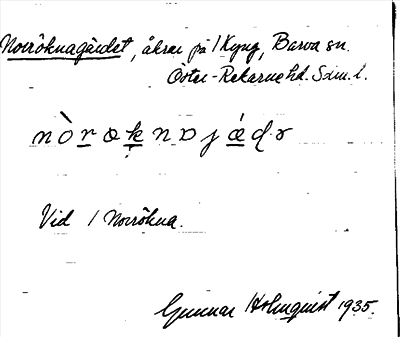 Norröknagärdet, åkrar på 1 Kyng, Barva sn.
Öster-Rekarne hd. Söm. l.
nòrøknɒjǻdɘ
Vid 1 Norrökna.
Gunnar Holmquist 1935.